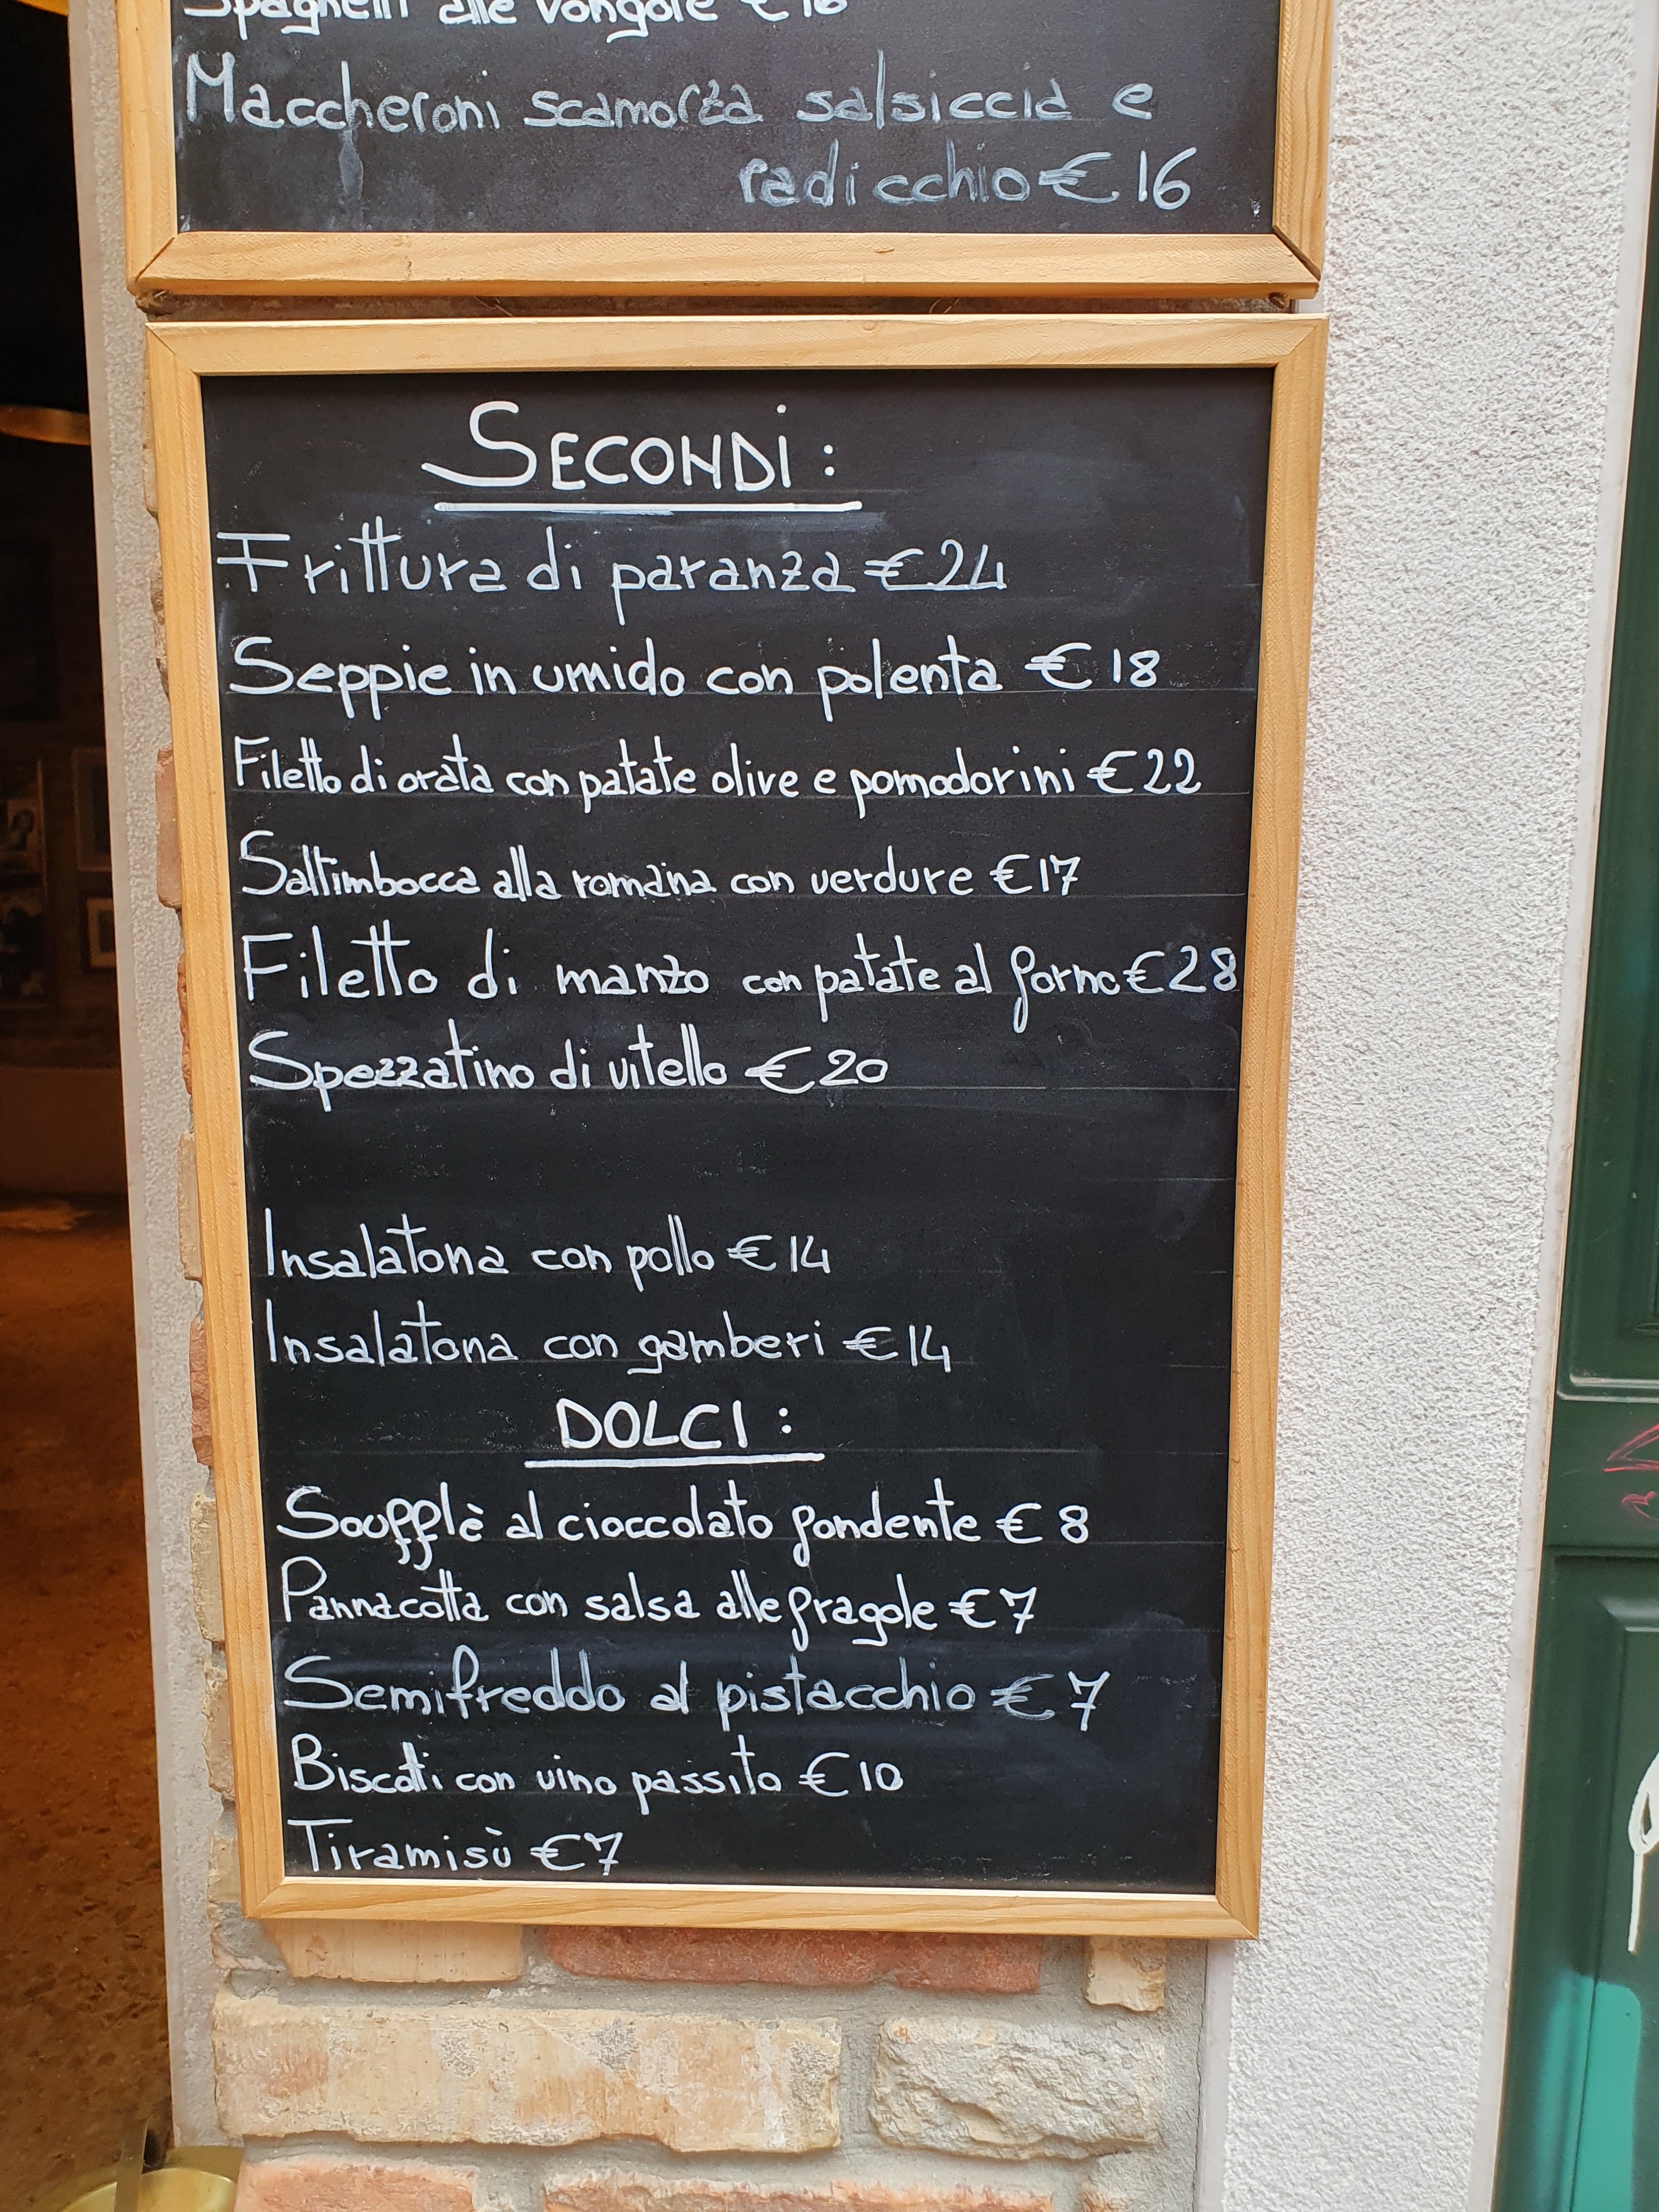 Spaghetti alle vongole €16
Maccheroni scamorza salsiccia e
radicchio € 16
SECONDI :
Frittura di paranza € 24
Seppie in umido con polenta € 18
Filetto di orata con patate olive e pomodorini € 22
Saltimbocca alla romana con verdure € 17
Filetto di manzo con patate al forno € 28
Spezzatino di vitello € 20
Insalatona con pollo € 14
Insalatona con gamberi € 14
DOLCI :
Soufflè al cioccolato fondente € 8
Pannacotta con salsa alle fragole € 7
Semifreddo al pistacchio € 7
Biscotti con vino passito € 10
Tiramisù € 7